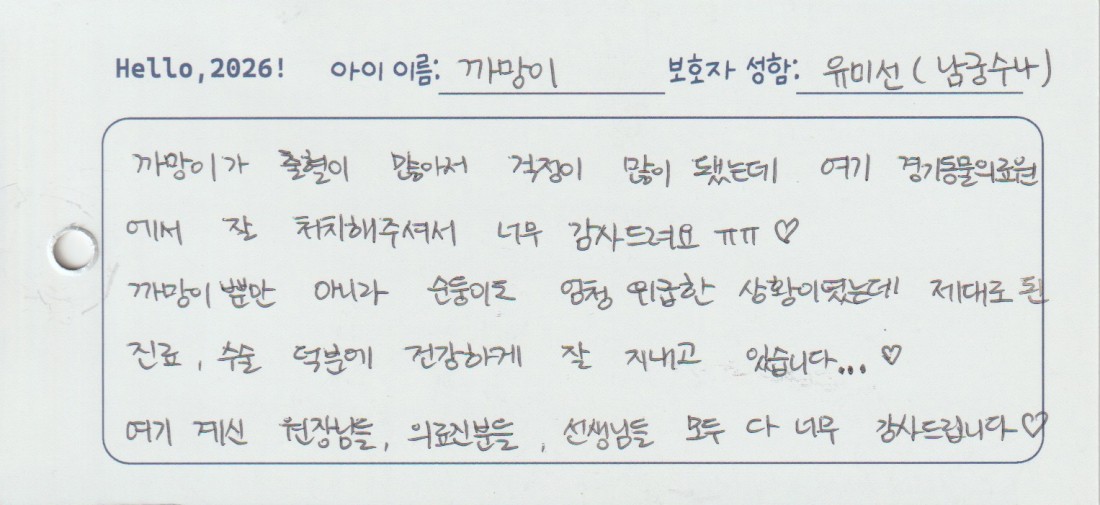 Hello,2026! 아이 이름: 까망이 보호자 성함: 유미선 ( 남궁수나 )
까망이가 출혈이 많아서 걱정이 많이 됐는데 여기 경기동물의료원
에서 잘 처치해주셔서 너무 감사드려요 ㅠㅠ ♡
까망이 뿐만 아니라 순둥이도 엄청 위급한 상황이였는데 제대로 된
진료, 수술 덕분에 건강하게 잘 지내고 있습니다... ♡
여기 계신 원장님들, 의료진분들, 선생님들 모두 다 너무 감사드립니다♡